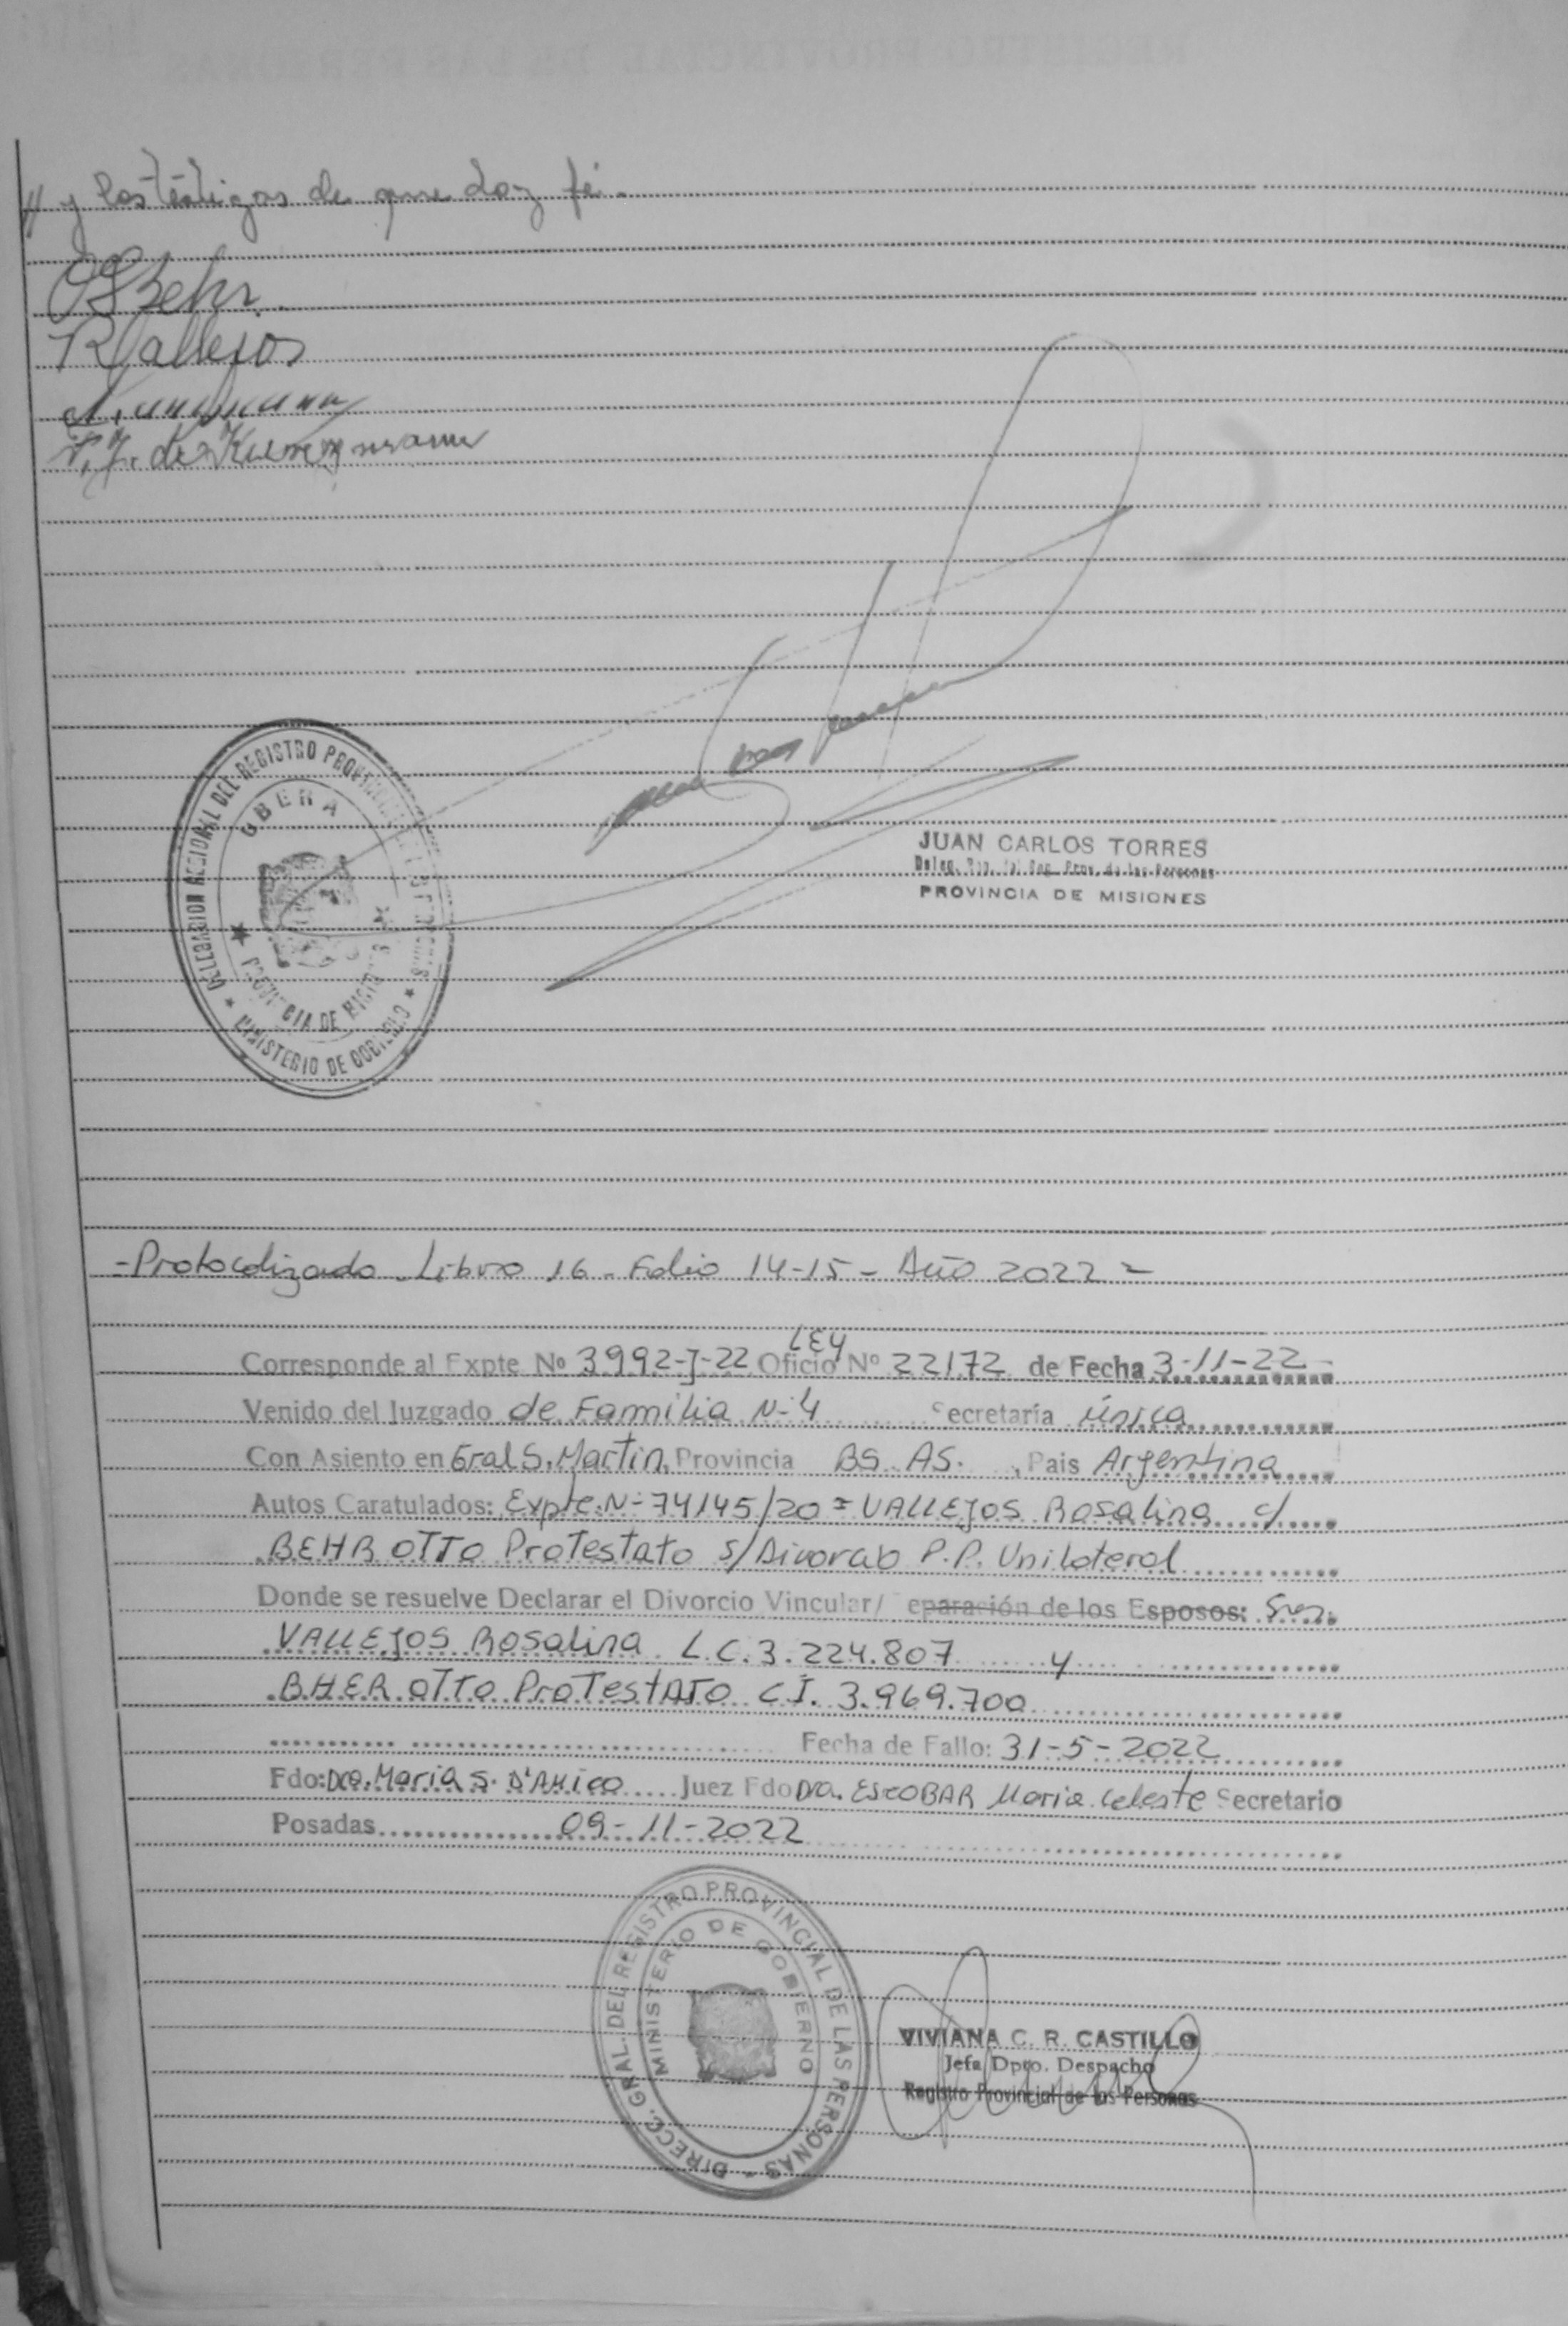 // y los testigos de que doy fé.-
OBehr.
RVallejos
de Kunzmann
DELEGACION REGIONAL DEL REGISTRO PROVINCIAL DE LAS PERSONAS
OBERA
PROVINCIA DE MISIONES
MINISTERIO DE GOBIERNO
JUAN CARLOS TORRES
Deleg. Reg. del Reg. Prov. de las Personas
PROVINCIA DE MISIONES
-Protocolizado Libro 16 - Folio 14-15 - Año 2022 -
LEY
Corresponde al Expte Nº 3992-J-22 Oficio Nº 22172 de Fecha 3-11-22-
Venido del Juzgado de Familia N-4 Secretaría única
Con Asiento en Gral S. Martin, Provincia BS. AS. , Pais Argentina
Autos Caratulados: Expte. N- 74145/20 = VALLEJOS Rosalina c/
BEHR OTTO Protestato s/Divorcio P.P. Unilateral
Donde se resuelve Declarar el Divorcio Vincular/ Separación de los Esposos: Sres.
VALLEJOS Rosalina L.C. 3.224.807 y
BHER OTTO ProTestATO C.I. 3.969.700
Fecha de Fallo: 31-5-2022
Fdo: Dra. Maria S. D'AMico Juez Fdo Dra. ESCOBAR Maria Celeste Secretario
Posadas 09-11-2022
DIRECC. GRAL. DEL REGISTRO PROVINCIAL DE LAS PERSONAS -
MINISTERIO DE GOBIERNO
VIVIANA C. R. CASTILLO
Jefa Dpto. Despacho
Registro Provincial de las Personas